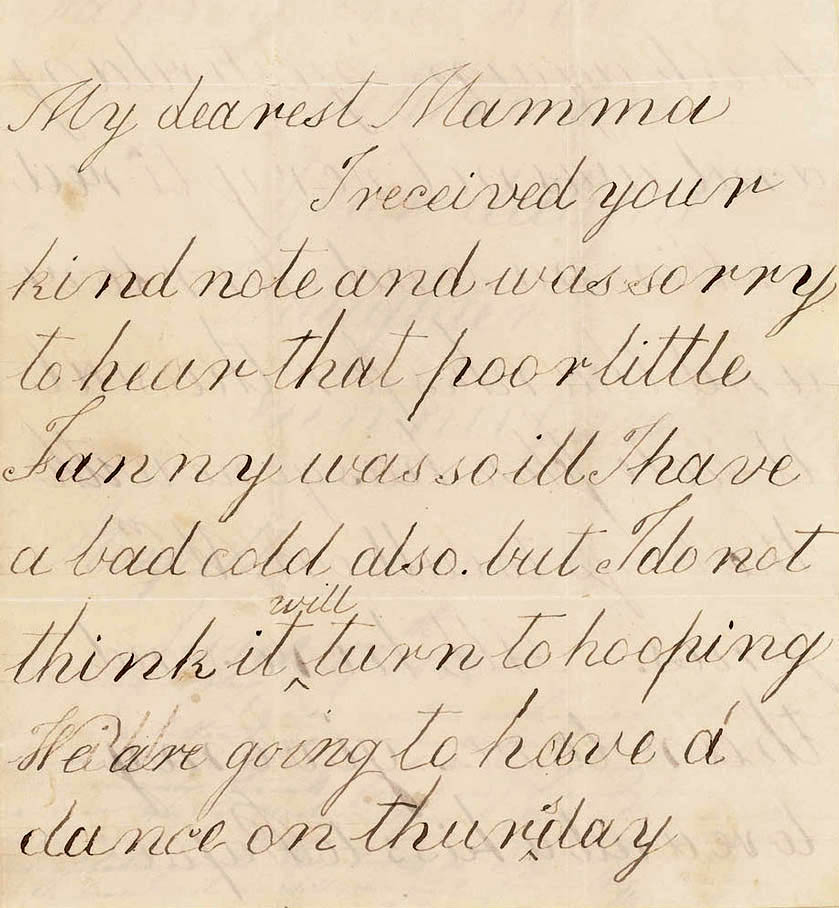 My dearest Mamma
I received your
kind note and was sorry
to hear that poor little
Fanny was so ill I have
a bad cold also. but I do not
think it will turn to hooping
We are going to have a
dance on thursday